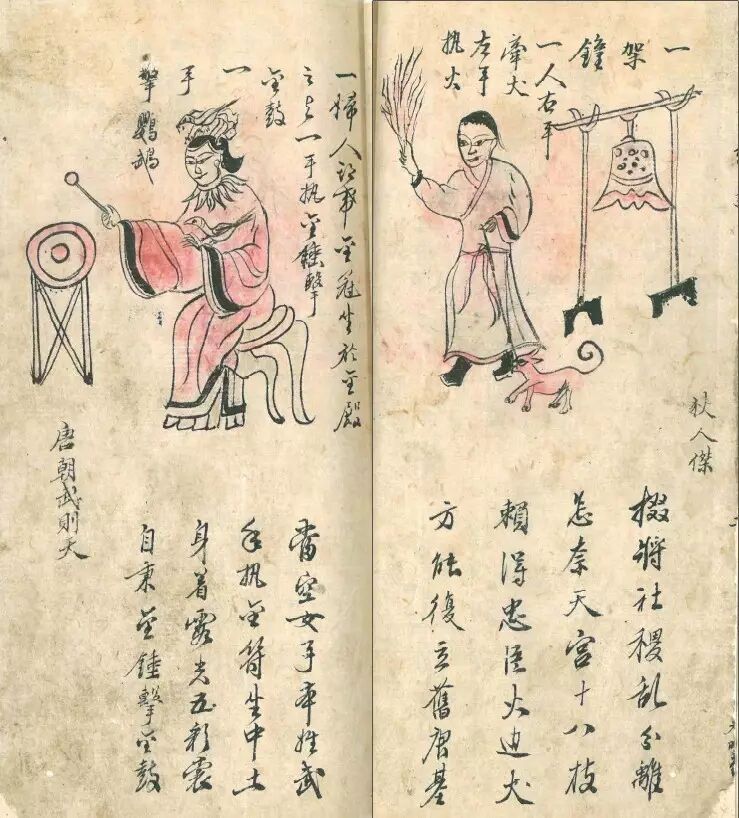 一
架
鐘
一人右手
牽犬
左手
执火
狄人傑
掇將社稷乱分離
怎奈天宫十八枝
賴得忠臣火边犬
方能復立舊唐基
一婦人金冠坐於金殿
之上一手执金槌擊
金鼓
一
手
擎鸚鵡
唐朝武則天
當空女子本姓武
手执金符生中土
身着霞光五彩
自秉金錘擊金鼓